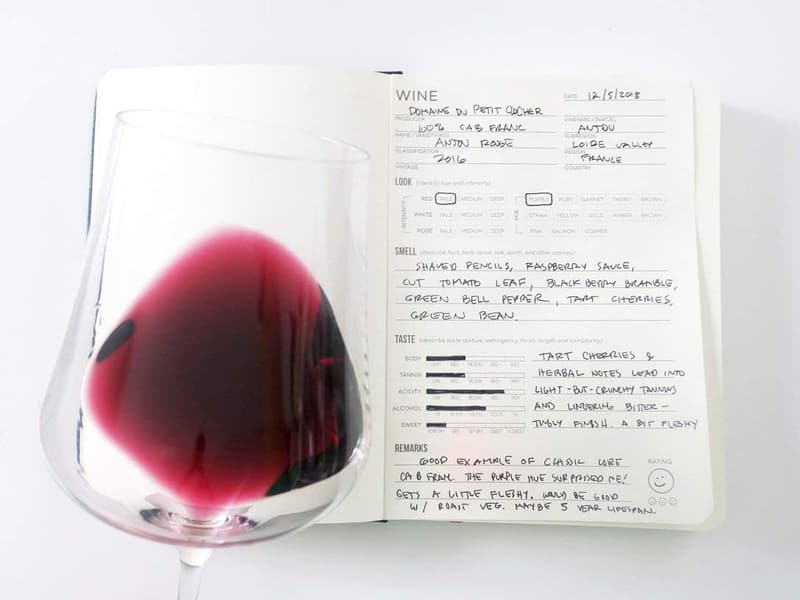 WINE
DATE 12/5/2018
DOMAINE DU PETIT CLOCHER
PRODUCER
VINEYARD / PARCEL
100% CAB FRANC
ANJOU
NAME / VARIETY(IES)
SUBREGION
ANJOU ROUGE
LOIRE VALLEY
CLASSIFICATION
REGION
2016
FRANCE
VINTAGE
COUNTRY
LOOK (identify hue and intensity)
INTENSITY
RED PALE MEDIUM DEEP
WHITE PALE MEDIUM DEEP
ROSÉ PALE MEDIUM DEEP
HUE
PURPLE RUBY GARNET TAWNY BROWN
STRAW YELLOW GOLD AMBER BROWN
PINK SALMON COPPER
SMELL (describe fruit, herb, spice, oak, earth, and other aromas)
SHAVED PENCILS, RASPBERRY SAUCE,
CUT TOMATO LEAF, BLACKBERRY BRAMBLE,
GREEN BELL PEPPER, TART CHERRIES,
GREEN BEAN.
TASTE (describe taste texture, astringency, finish, length and complexity)
BODY
TANNIN
ACIDITY
ALCOHOL
SWEET
TART CHERRIES &
HERBAL NOTES LEAD INTO
LIGHT-BUT-CRUNCHY TANNINS
AND LINGERING BITTER-
TINGLY FINISH. A BIT FLESHY
REMARKS
GOOD EXAMPLE OF CLASSIC LOIRE
CAB FRANC. THE PURPLE HUE SURPRISED ME!
GETS A LITTLE FLESHY. WOULD BE GOOD
W/ ROAST VEG. MAYBE 5 YEAR LIFESPAN.
RATING